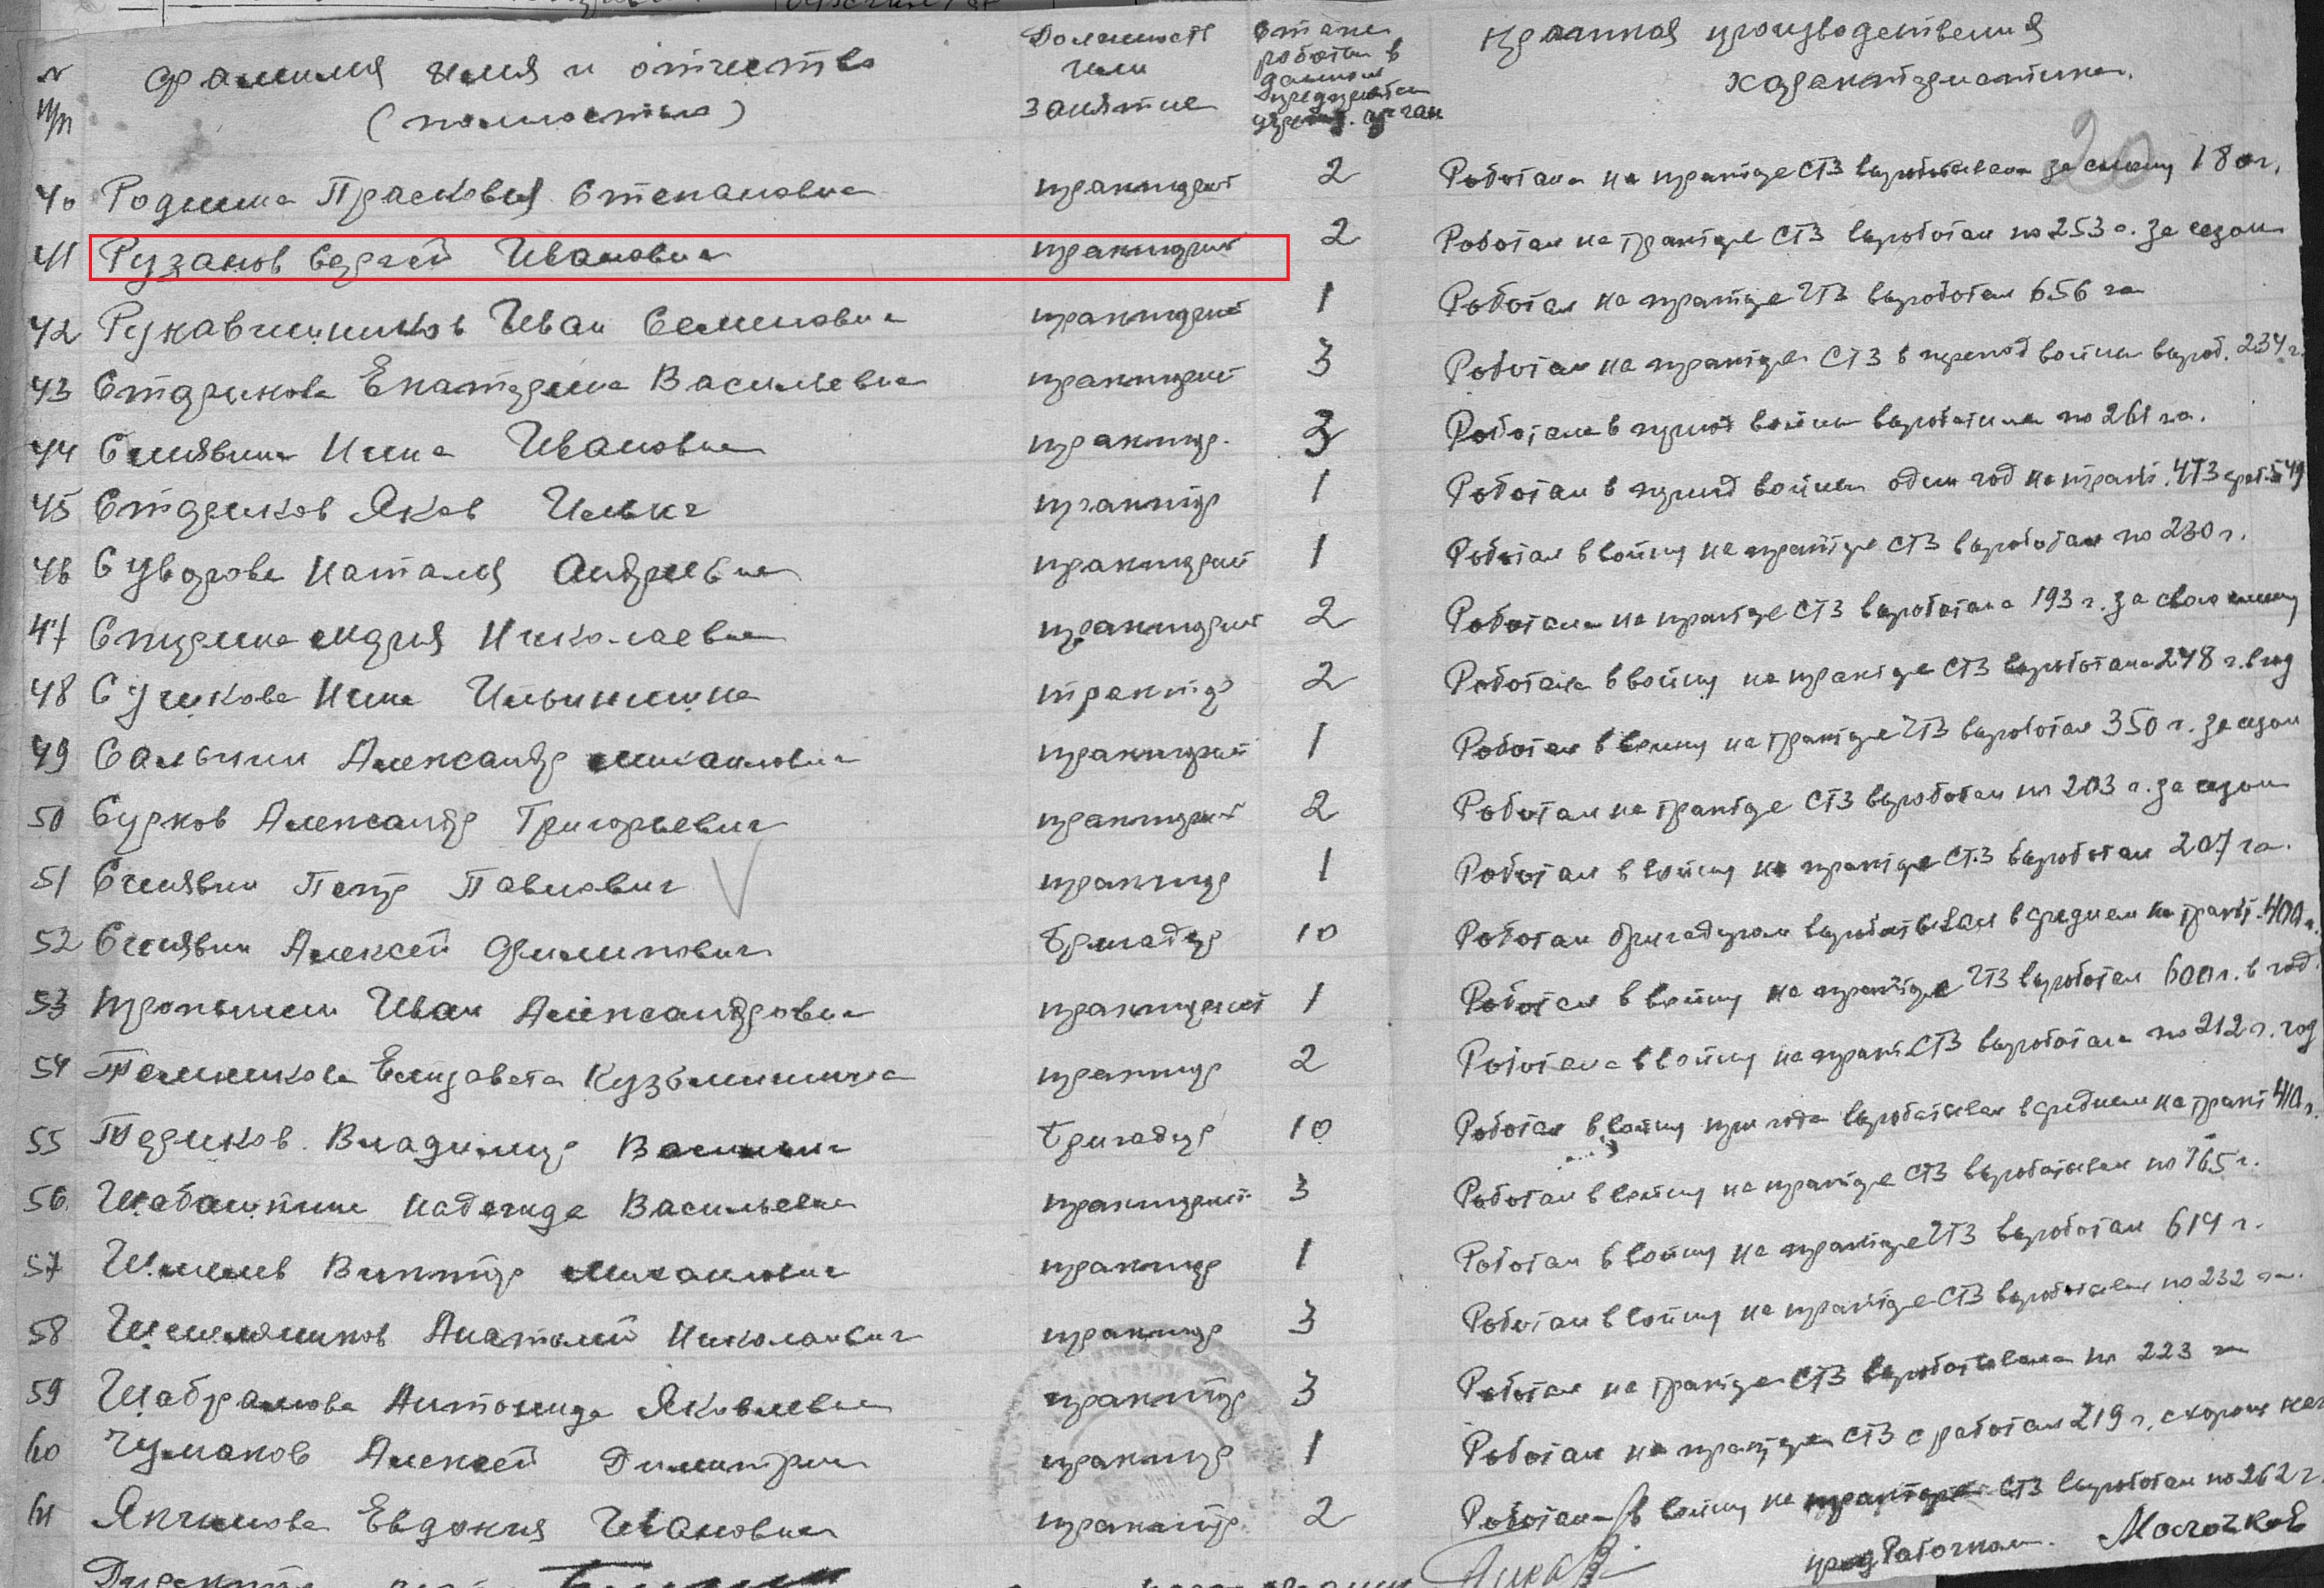 № п/п фамилия имя и отчество (полностью) Должность или занятие Стаж работы в данном предприятии краткая производственная характеристика.
20
40 Родина Прасковья Степановна тракторист 2 Работала на тракторе СТЗ вырабатывала за смену 180 г.
41 Рузанов Сергей Иванович тракторист 2 Работал на тракторе СТЗ выработал по 253 г. за сезон
42 Рукавишников Иван Семенович тракторист 1 Работал на тракторе ЧТЗ выработал 656 га
43 Старикова Екатерина Васильевна тракторист 3 Работала на тракторе СТЗ в период войны выраб. 234 г.
44 Синявина Нина Ивановна трактор. 3 Работала в период войны выработала по 261 га.
45 Стариков Яков Ильич трактор 1 Работал в период войны один год на тракт. ЧТЗ
46 Суворова Наталья Андреевна тракторист 1 Работал в войну на тракторе СТЗ выработал по 230 г.
47 Спирина Мария Николаевна тракторист 2 Работала на тракторе СТЗ выработала 193 г. за свою смену
48 Сушкова Нина Ильинична трактор 2 Работала в войну на тракторе СТЗ выработала 248 г. в год
49 Сальник Александр Михайлович тракторист 1 Работал в войну на тракторе ЧТЗ выработал 350 г. за сезон
50 Сурков Александр Григорьевич тракторист 2 Работал на тракторе СТЗ выработал по 203 г. за сезон
51 Синявин Петр Павлович трактор 1 Работал в войну на тракторе СТЗ выработал 207 га.
52 Синявин Алексей Филипович Бригадир 10 Работал бригадиром вырабатывал в среднем на тракт. 400 г.
53 Иван Александрович тракторист 1 Работал в войну на тракторе ЧТЗ выработал 600 г. в год
54 Темникова Елизавета Кузьминична трактор 2 Работала в войну на тракт. СТЗ выработала по 212 г. год
55 Териков Владимир Васильич Бригадир 10 Работал в войну три года вырабатывал в среднем на тракт 410 г.
56 Шабашкина Надежда Васильевна тракторист 3 Работал в войну на тракторе СТЗ вырабатывал по 165 г.
57 Виктор Михайлович трактор 1 Работал в войну на тракторе ЧТЗ выработал 614 г.
58 Анатолий Николаевич трактор 3 Работал в войну на тракторе СТЗ вырабатывал по 232 га.
59 Шабрамова Антонида Яковлевна трактор 3 Работал на тракторе СТЗ вырабатывала по 223 га
60 Чумаков Алексей Димитрич трактор 1 Работал на тракторе СТЗ сработал 219 г.
61 Якчикова Евдокия Ивановна трактор 2 Работала в войну на тракторе СТЗ выработал по 262 г
пред Рабочком. Молочков